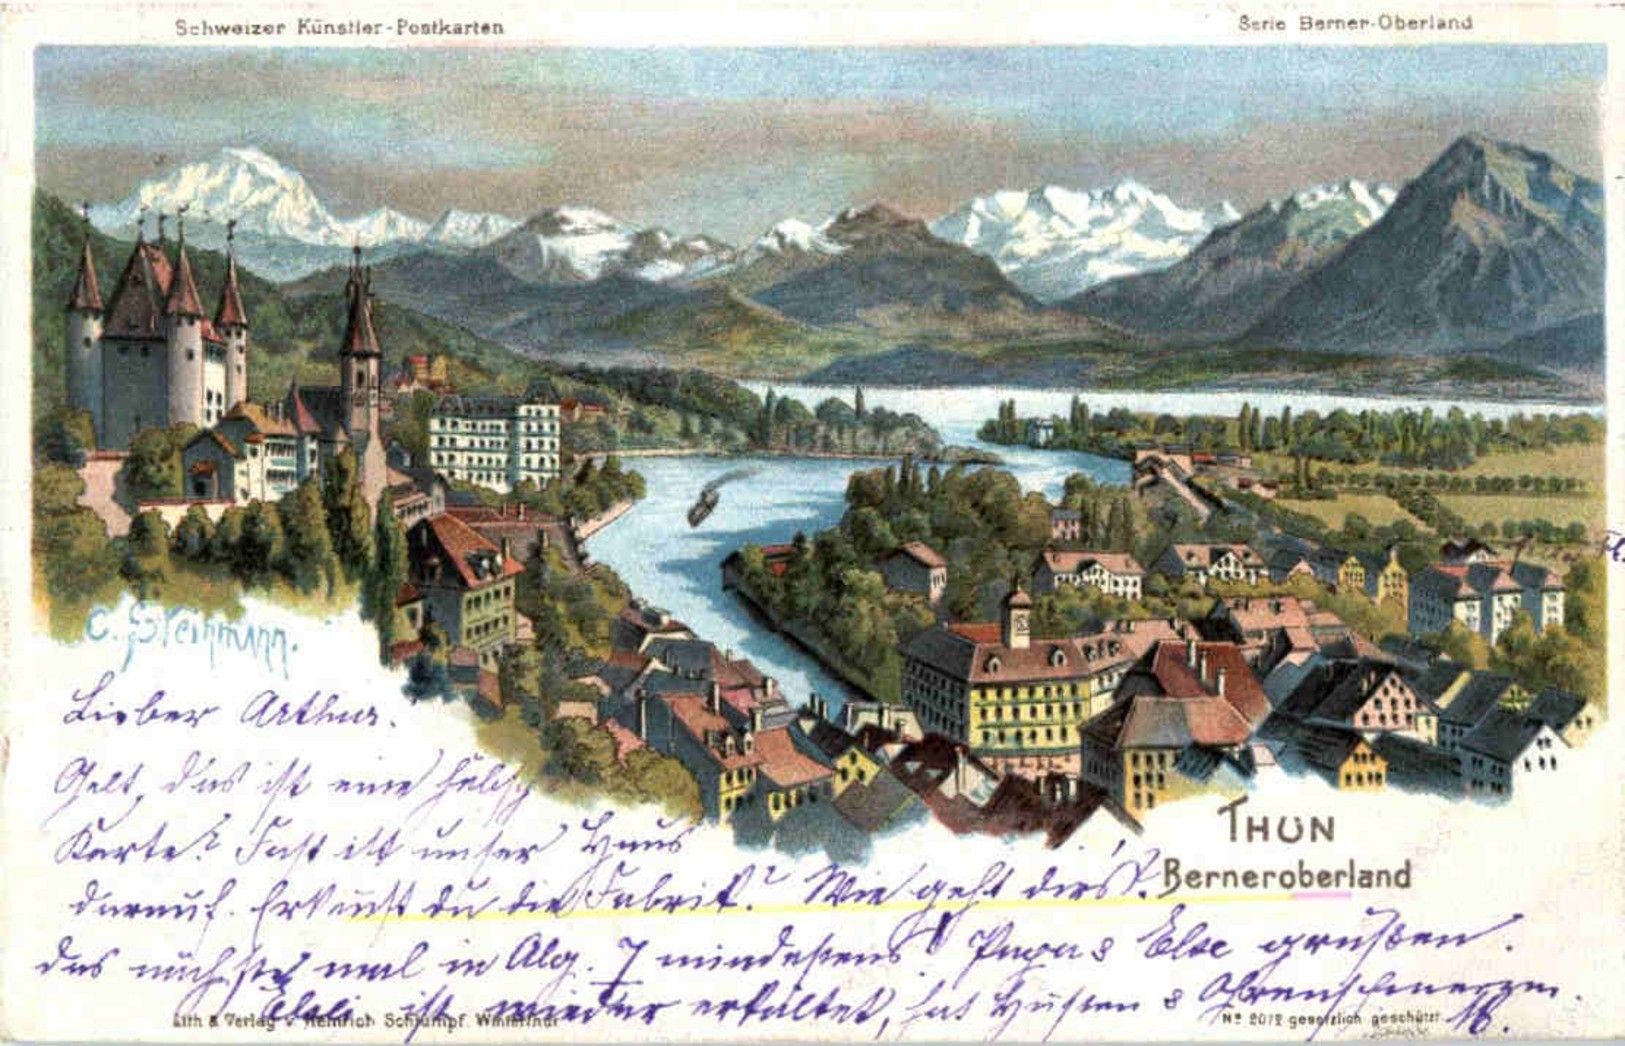 Schweizer Künstler-Postkarten
Serie Berner-Oberland
C. Steinmann.
THUN
Berneroberland
Lieber Arthur.
Gelt, das ist eine hübsche
Karte? Fast ist unser Haus
darauf. Erkennst du die Fabrik? Wie geht dir's?
das nächste mal in Alg. 7 mindestens! Papa & Else grüßen.
ist wieder erkältet, hat Husten & Ohrenschmerzen.
Lith & Verlag v. Heinrich Schlumpf, Winterthur
Nº 2072 gesetzlich geschützt.